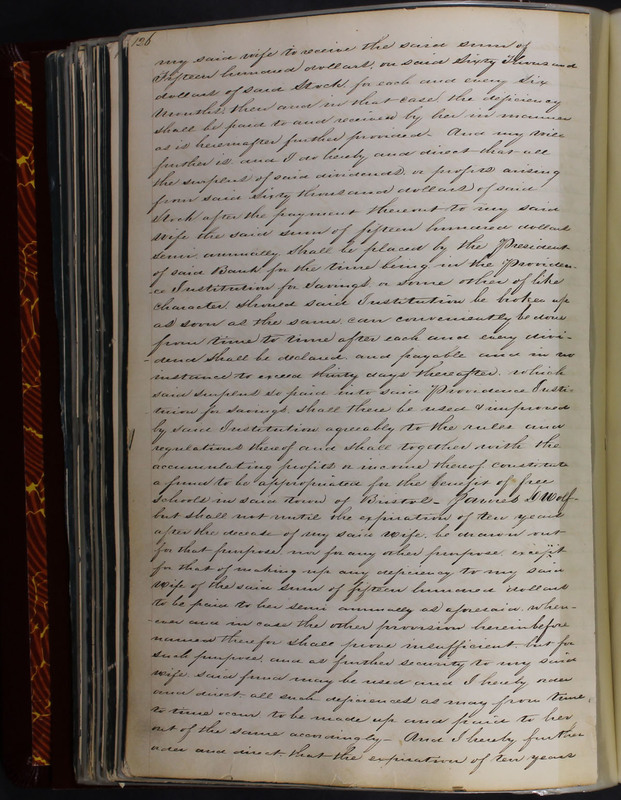 126
my said wife to receive the said sum of
Fifteen hundred dollars, on said Sixty thousand
dollars of said Stock, for each and every Six
Months, then and in that case, the deficiency
shall be paid to and received by her in manner
as is hereinafter further provided. And my Will
further is and I do hereby and direct that all
the surplus of said dividends or profits arising
from said Sixty thousand dollars of said
Stock after the payment thereout to my said
wife the said sum of fifteen hundred dollars
semi annually, shall be placed by the President
of said Bank for the time being in the Providen-
-ce Institution for Savings or some other of like
character should said Institution be broken up
as soon as the same can conveniently be done
from time to time after each and every divi-
-dend shall be delared, and payable and in no
instance to exceed thirty days thereafter, which
said surplus so paid into said Providence Insti-
tution for Savings, shall there be used & improved
by said Institution agreeably to the rules and
regulations thereof and shall together with the
accumulating profits or income thereof constitute
a fund to be appropriated for the benefit of free
schools in said town of Bristol - James DWolf-
but shall not until the expiration of ten years
after the decease of my said wife, be drawn out
for that purpose, nor for any other purpose, except
for that of making up any deficiency to my said
wife of the said sum of fifteen hundred dollars
to be paid to her semi annually as aforesaid, when-
-ever and in case the other provision hereinbefore
named therefor shall prove insufficient, but for
such purpose, and as further security to my said
wife, said fund may be used and I hereby order
and direct, all such deficiences as may from time,
to time occur to be made up and paid to her
out of the same accordingly - And I hereby further
order and direct that the expiration of ten years